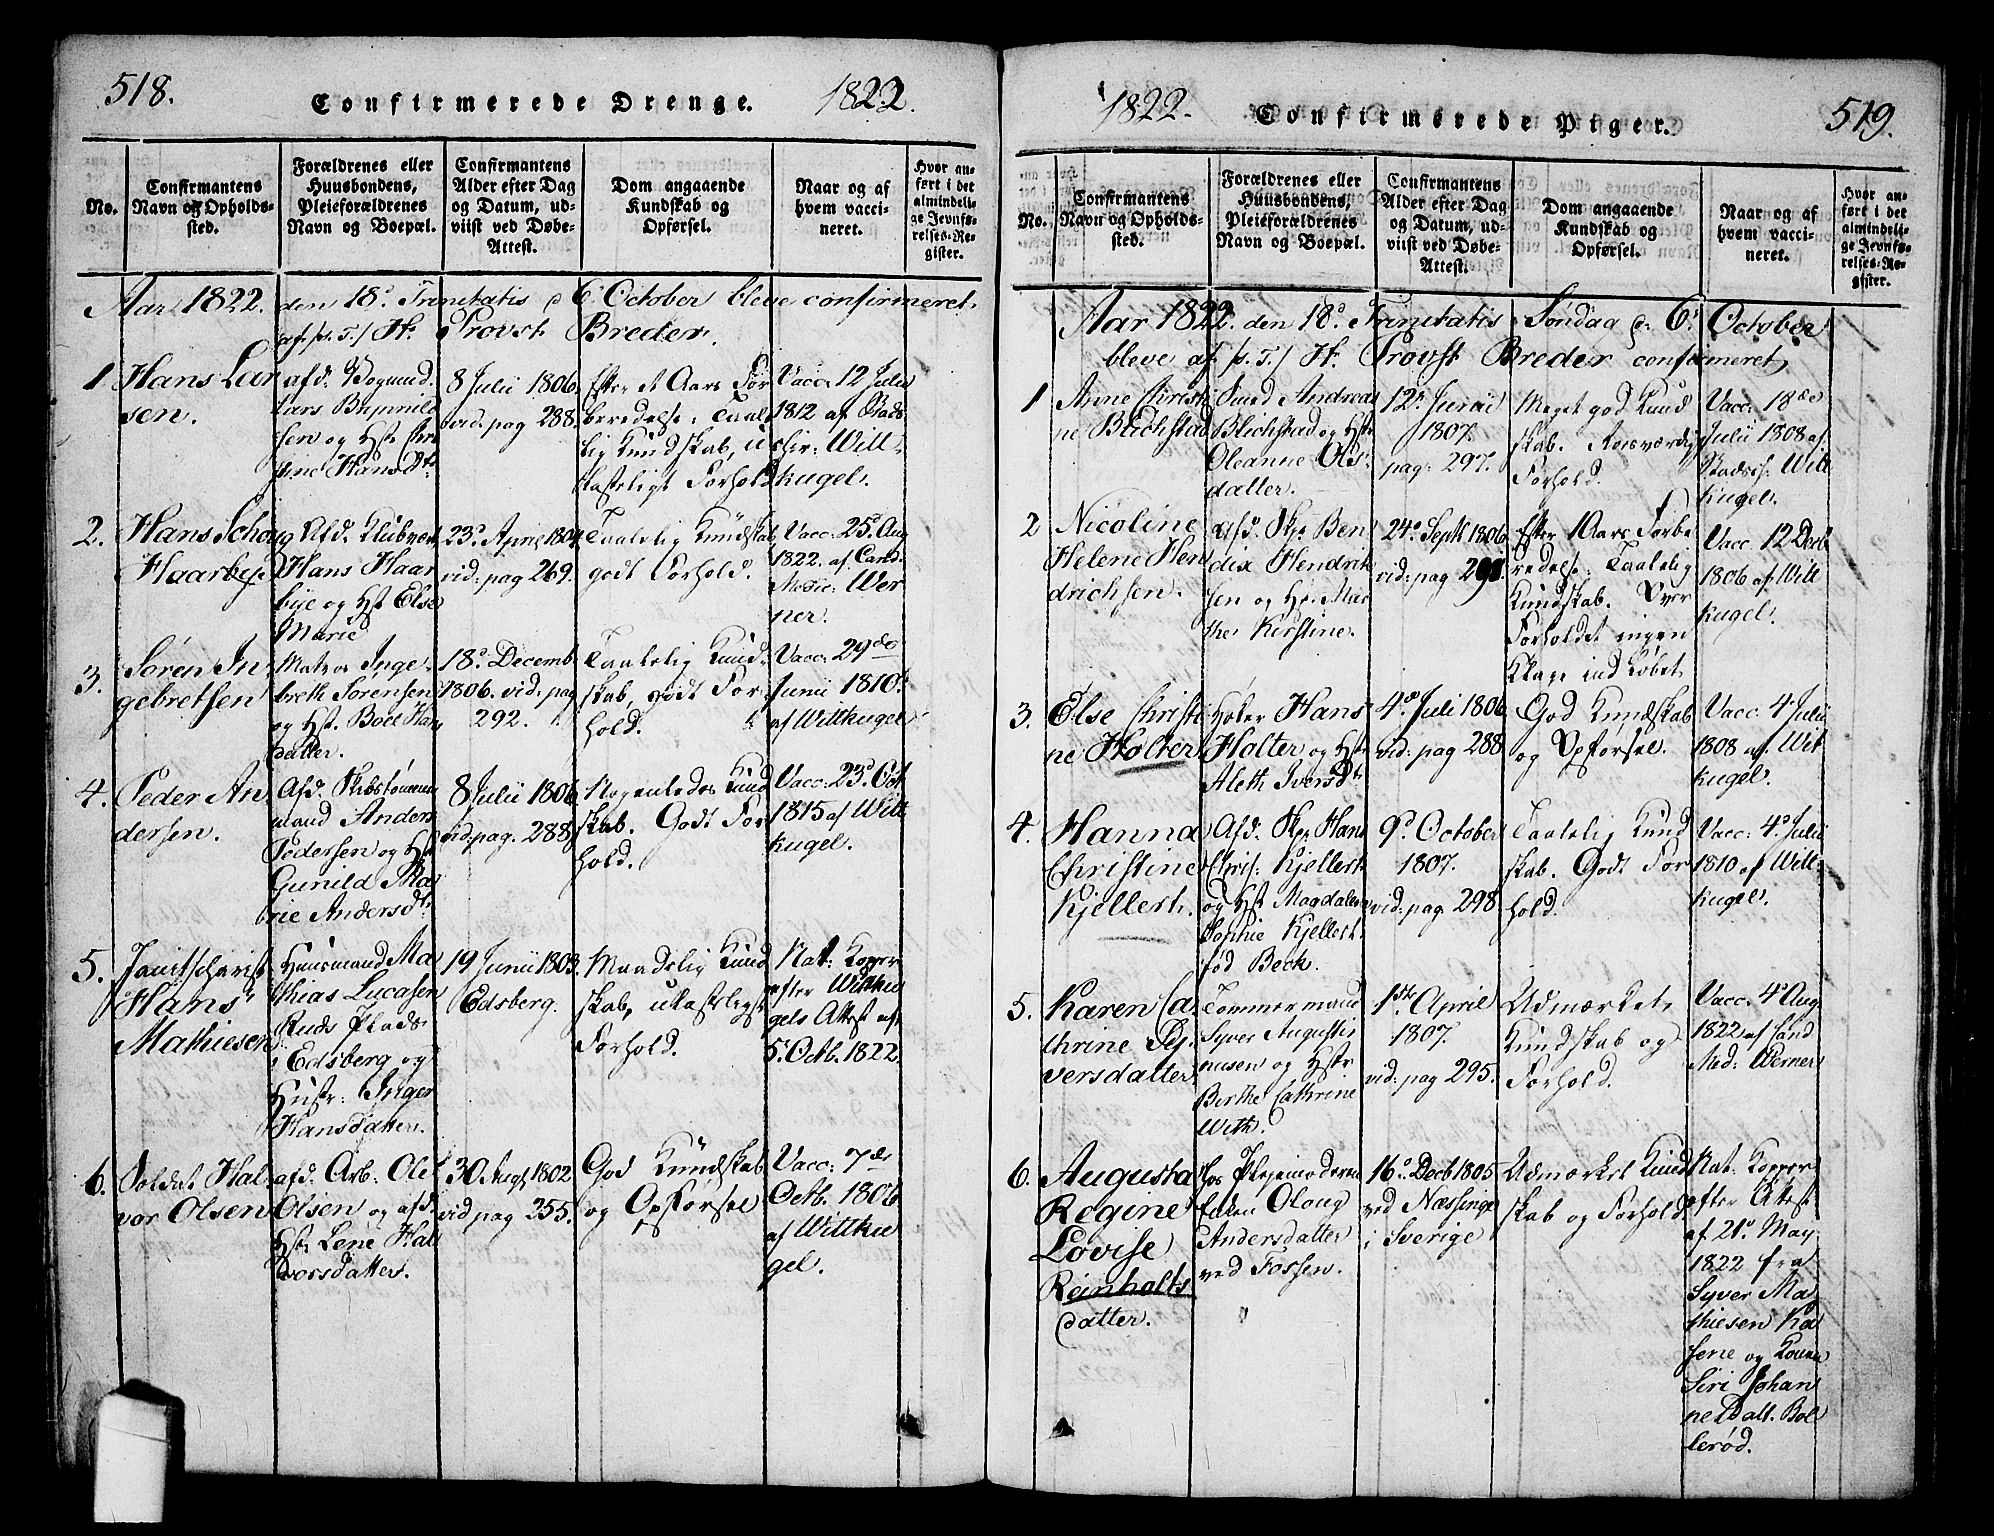 518.
Confirmerede Drenge.
1822.
No.
Confirmantens
Navn og Opholds-
sted.
Forældrenes eller
Huusbondens,
Pleieforældrenes
Navn og Boepæl.
Confirmantens
Alder efter Dag
og Datum, ud-
viist ved Døbe-
Attest.
Dom angaaende
Kundskab og
Opførsel.
Naar og af
hvem vacci-
neret.
Hvor an-
ført i det
almindeli-
ge Jevnfø-
relses-Re-
gister.
Aar 1822. den 18de Trinitatis d 6 October bleve confirmeret
af p. T. / Hr Provst Breder.
1
Hans Lar
sen.
afd. Bogmd.
Lars
sen og Hst. Chri
stine Hansdtr
8 Julii 1806
vid: pag 288.
Efter et Aars For
beredelse: Taale
lig Kundskab, u
lasteligt Forhold
Vacc: 12 Julii
1812 af Stads
chir: Witt
kugel.
2.
Hans Schou
Haarbye
Afd. Klubvert
Hans Haar
bye og Hst Else
Marie
23de April 1804
vid: pag 269.
Taalelig Kundskab
godt Forhold.
Vacc: 25de Aug
1822. af Cand.
Medic: Wer
ner.
3.
Søren In
gebretsen
Matros Inge
breth Sørensen
og Hst. Boel Han
datter.
18de Decemb
1806. vid: pag
292.
Taalelig Kund
skab, godt For
hold.
Vacc: 29de
Junii 1810.
af Wittkugel
4.
Peder An
dersen.
Afd. Skibstømmer
mand Anders
Pedersen og Hst
Gunild Ma
rie Andersdtr
8 Julii 1806
vid: pag. 288
Nogenledes Kund
skab. Godt For
hold.
Vacc: 23de Oct
1815 af Witt
kugel.
5.
Janitscharist
Hans
Mathiesen
Huusmand Ma
thias Lucasen
Ruds Plads
i Edsberg og
Hustr: Inger
Hansdatter.
19 Junii 1803
Edsberg.
Maadelig Kund
skab, ulasteligt
Forhold.
Nat: Kopper
efter Wittku
gels Attest af
5 Octb. 1822.
6.
Soldat Hal
vor Olsen
afd. Arb: Ole
Olsen og afd.
Hstr Lene Hal
vorsdatter.
30 Augt 1802
vid pag 255.
God Kundskab
og Opførsel
Vacc: 7de
Octb. 1806
af Wittku
gel.
1822.
Confirmerede Piger.
519.
No.
Confirmantens
Navn og Opholds-
sted.
Forældrenes eller
Huusbondens,
Pleieforældrenes
Navn og Boepæl.
Confirmantens
Alder efter Dag
og Datum, ud-
viist ved Døbe-
Attest.
Dom angaaende
Kundskab og
Opførsel.
Naar og af
hvem vacci-
neret.
Hvor an-
ført i det
almindeli-
ge Jevnfø-
relses-Re-
gister.
Aar 1822. den 18de Trinitatis Søndag d: 6te October
bleve af p. T. / Hr Provst Breder confirmeret,
1
Anne Christi
ne Blichstad
Smed Andreas
Blichstad og Hstr
Oleanne Ols
datter.
12te Junii
1807.
pag: 297.
Meget god Kund
skab. Roesværdig
Forhold.
Vacc: 18de
Julii 1808 af
Stadsch. Witt
kugel.
2
Nicoline
Helene Hen
drichsen.
afd. Skp. Ben
dix Hendrik
sen og Hst. Mar
the Kirstine.
24de Septb 1806
vid: pag 290.
Efter 1 Aars Forbe
redelse: Taalelig
Kundskab. Over
Forholdet ingen
Klage ind Løbet
Vacc. 12 Decb
1806 af Witt
kugel.
3.
Else Christi
ne Holter
Høker Hans
Holter og Hstr
Aleth Iversdtr
4de Juli 1806
vid: pag 288
God Kundskab
og Opførsel.
Vacc: 4 Julii
1808 af Wit
kugel.
4.
Hanna
Christine
Kjellert.
Afd. Skp. Hans
Chris: Kjellert
og Hst Magdalene
Sophie Kjellert
fød Beck.
9de October
1807.
vid: pag 298
Taalelig Kund
skab. Godt For
hold.
Vacc: 4de Julii
1810 af Witt
kugel.
5.
Karen Ca
thrine Sy
versdatter
Tømmermand
Syver Augusti
nusen og Hstr
Birthe Cathrine
With.
1ste April
1807.
vid: pag 295.
Udmærket
Kundskab og
Forhold.
Vacc: 4de Aug
1822 af Cand
Med: Werner
6.
Augusta
Regine
Lovise
Reinholts
datter.
hos Plejemoderen
Enken Oloug
Andersdatter
ved Fossen.
16de Decb 1805
ved Næssinge
i Sverige
Udmærket Kund
skab og Forhold
Nat: Kopper
efter Attest
af 21de May
1822 fra
Syver Ma
thiesen Ka
sene og Kone
Siri Johan
ne Datt. Bol
lerød.